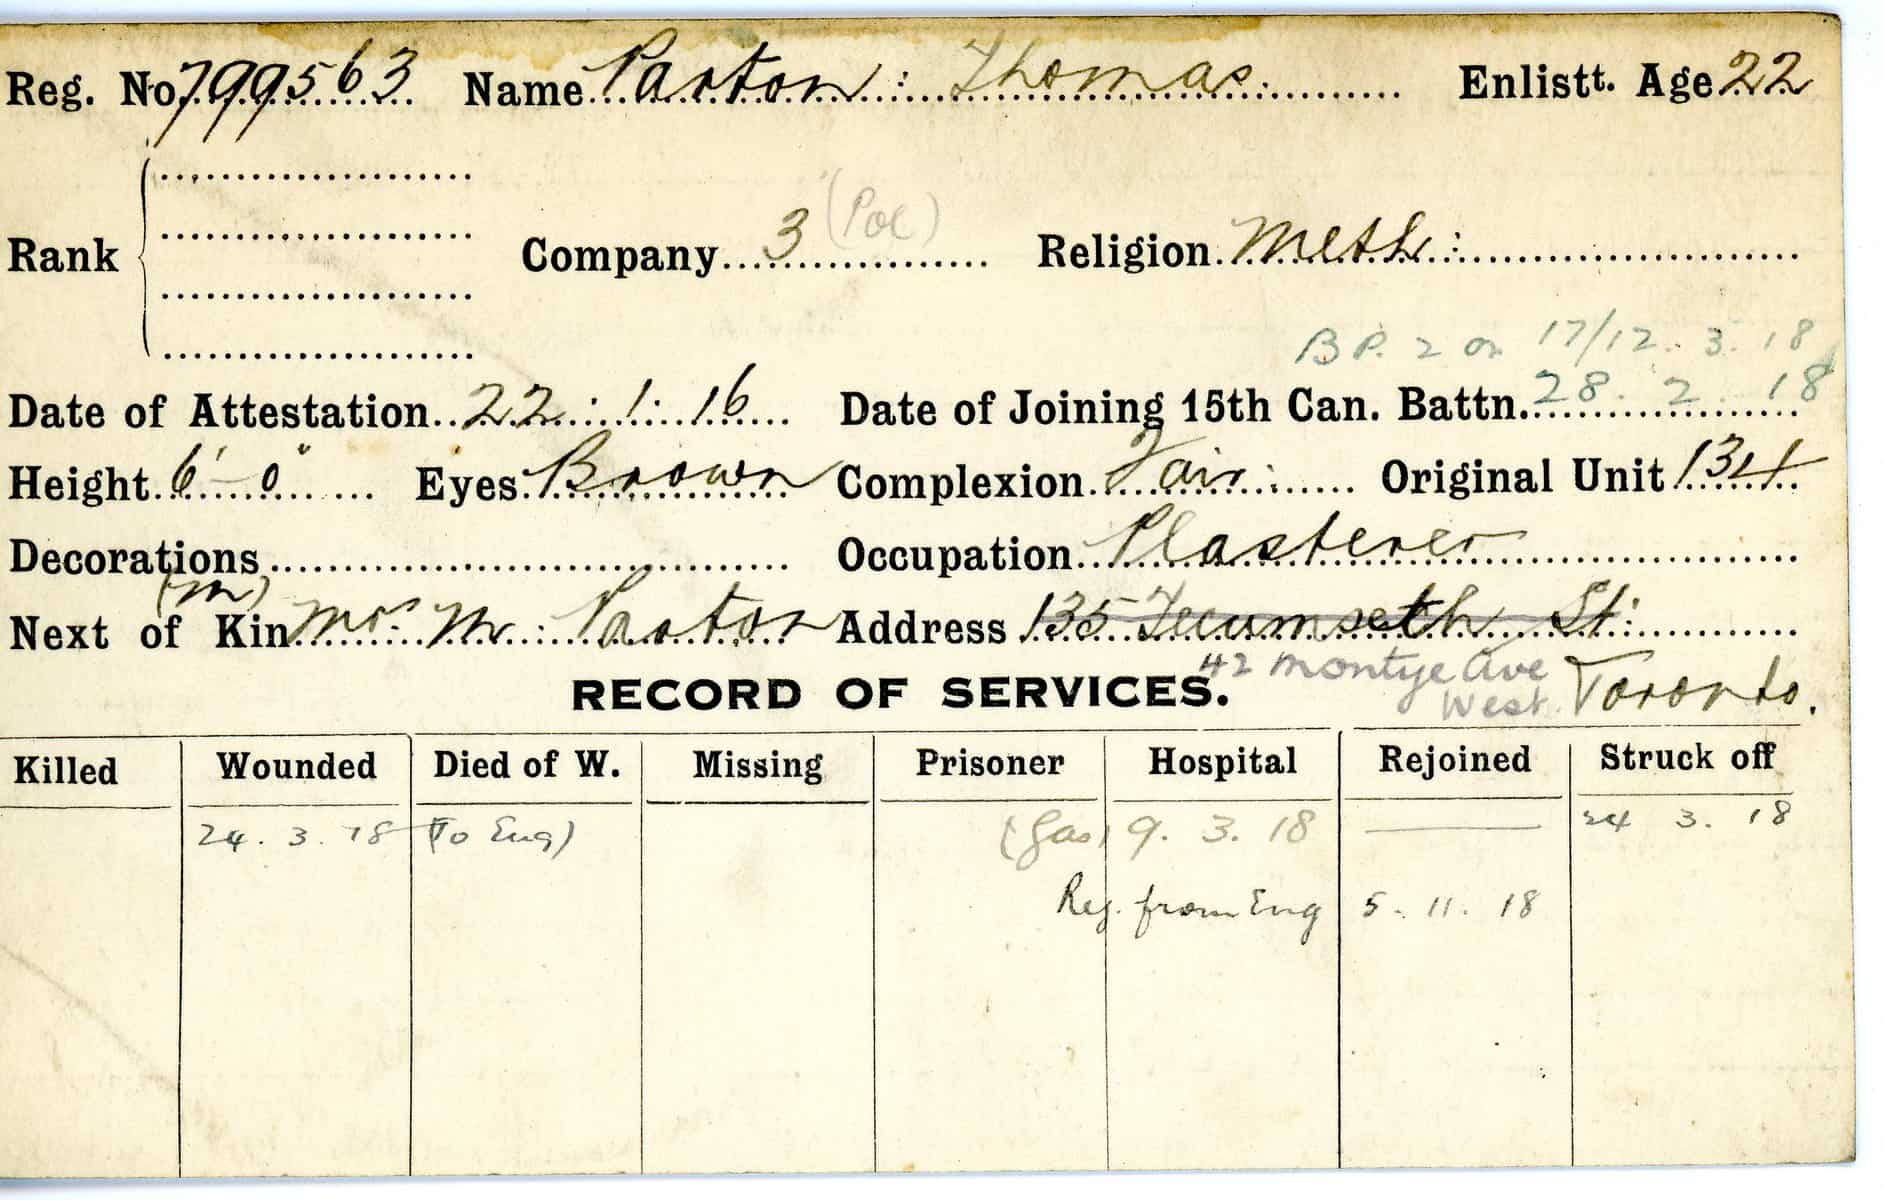 Reg. No 799563 Name Paxton : Thomas. Enlistt. Age 22
Rank Company 3 (Poc) Religion Meth :
B P. 2 on 17/12. 3. 18
Date of Attestation 22 . 1 . 16 Date of Joining 15th Can. Battn. 28. 2 18
Height 6' 0" Eyes Brown Complexion Fair : Original Unit 134
Decorations Occupation Plasterer
(M)
Next of Kin Mrs. M. Paxton Address 135 Tecumseth St :
RECORD OF SERVICES. 42 Ave Toronto.
West
Killed Wounded Died of W. Missing Prisoner Hospital Rejoined Struck off
24. 3. 18 (To Eng) (Gas) 9. 3. 18 — 24 3. 18
Rej. from Eng 5. 11. 18